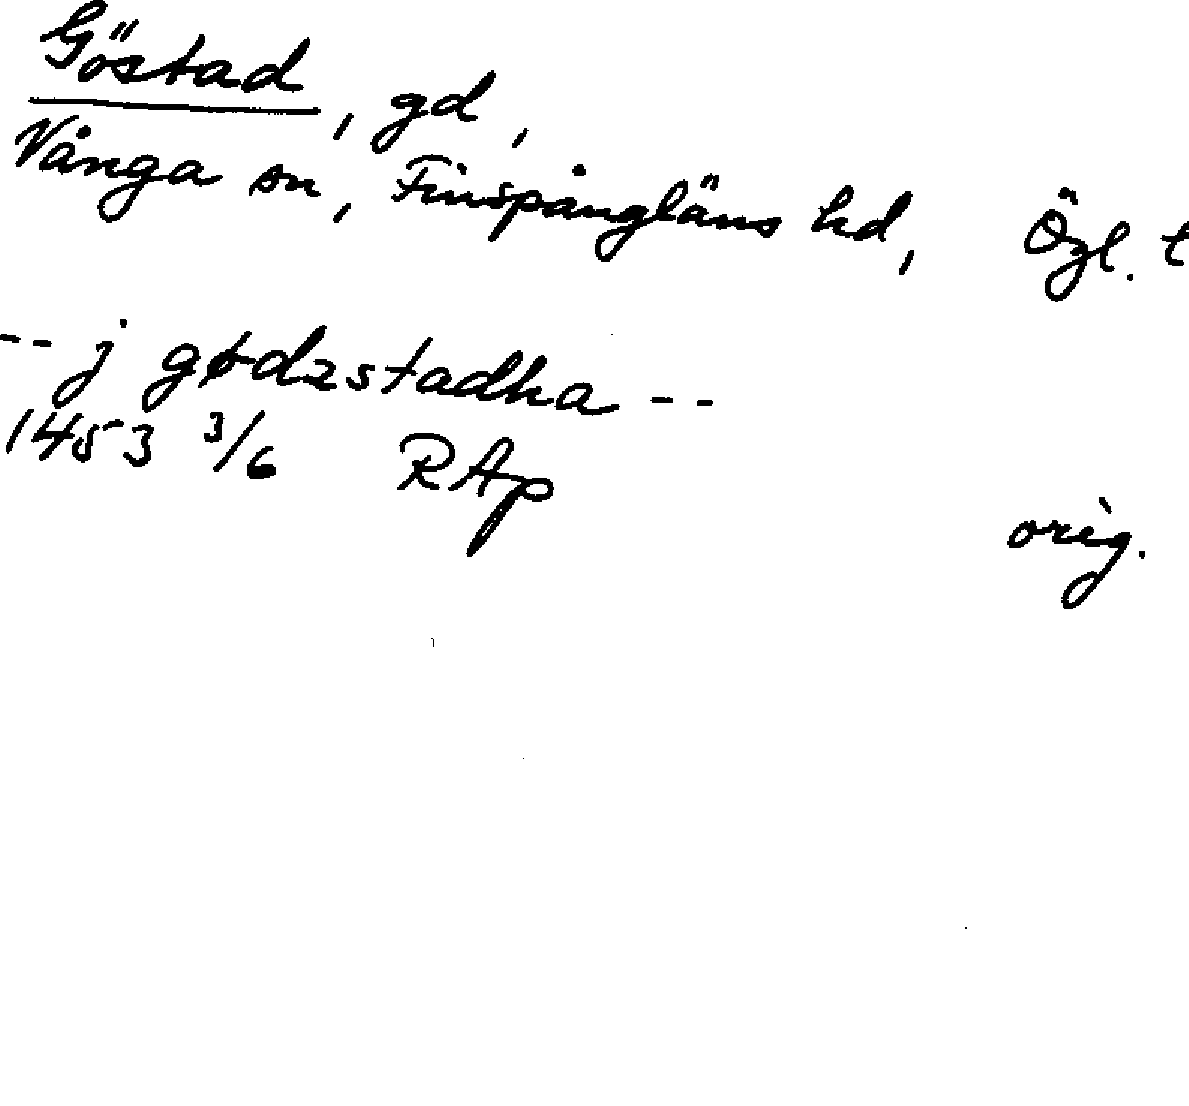 Göstad, gd,
Vånga sn, Finspångläns hd, Ögl. t
-- j gødzstadha --
1453 3/6 RAp
orig.